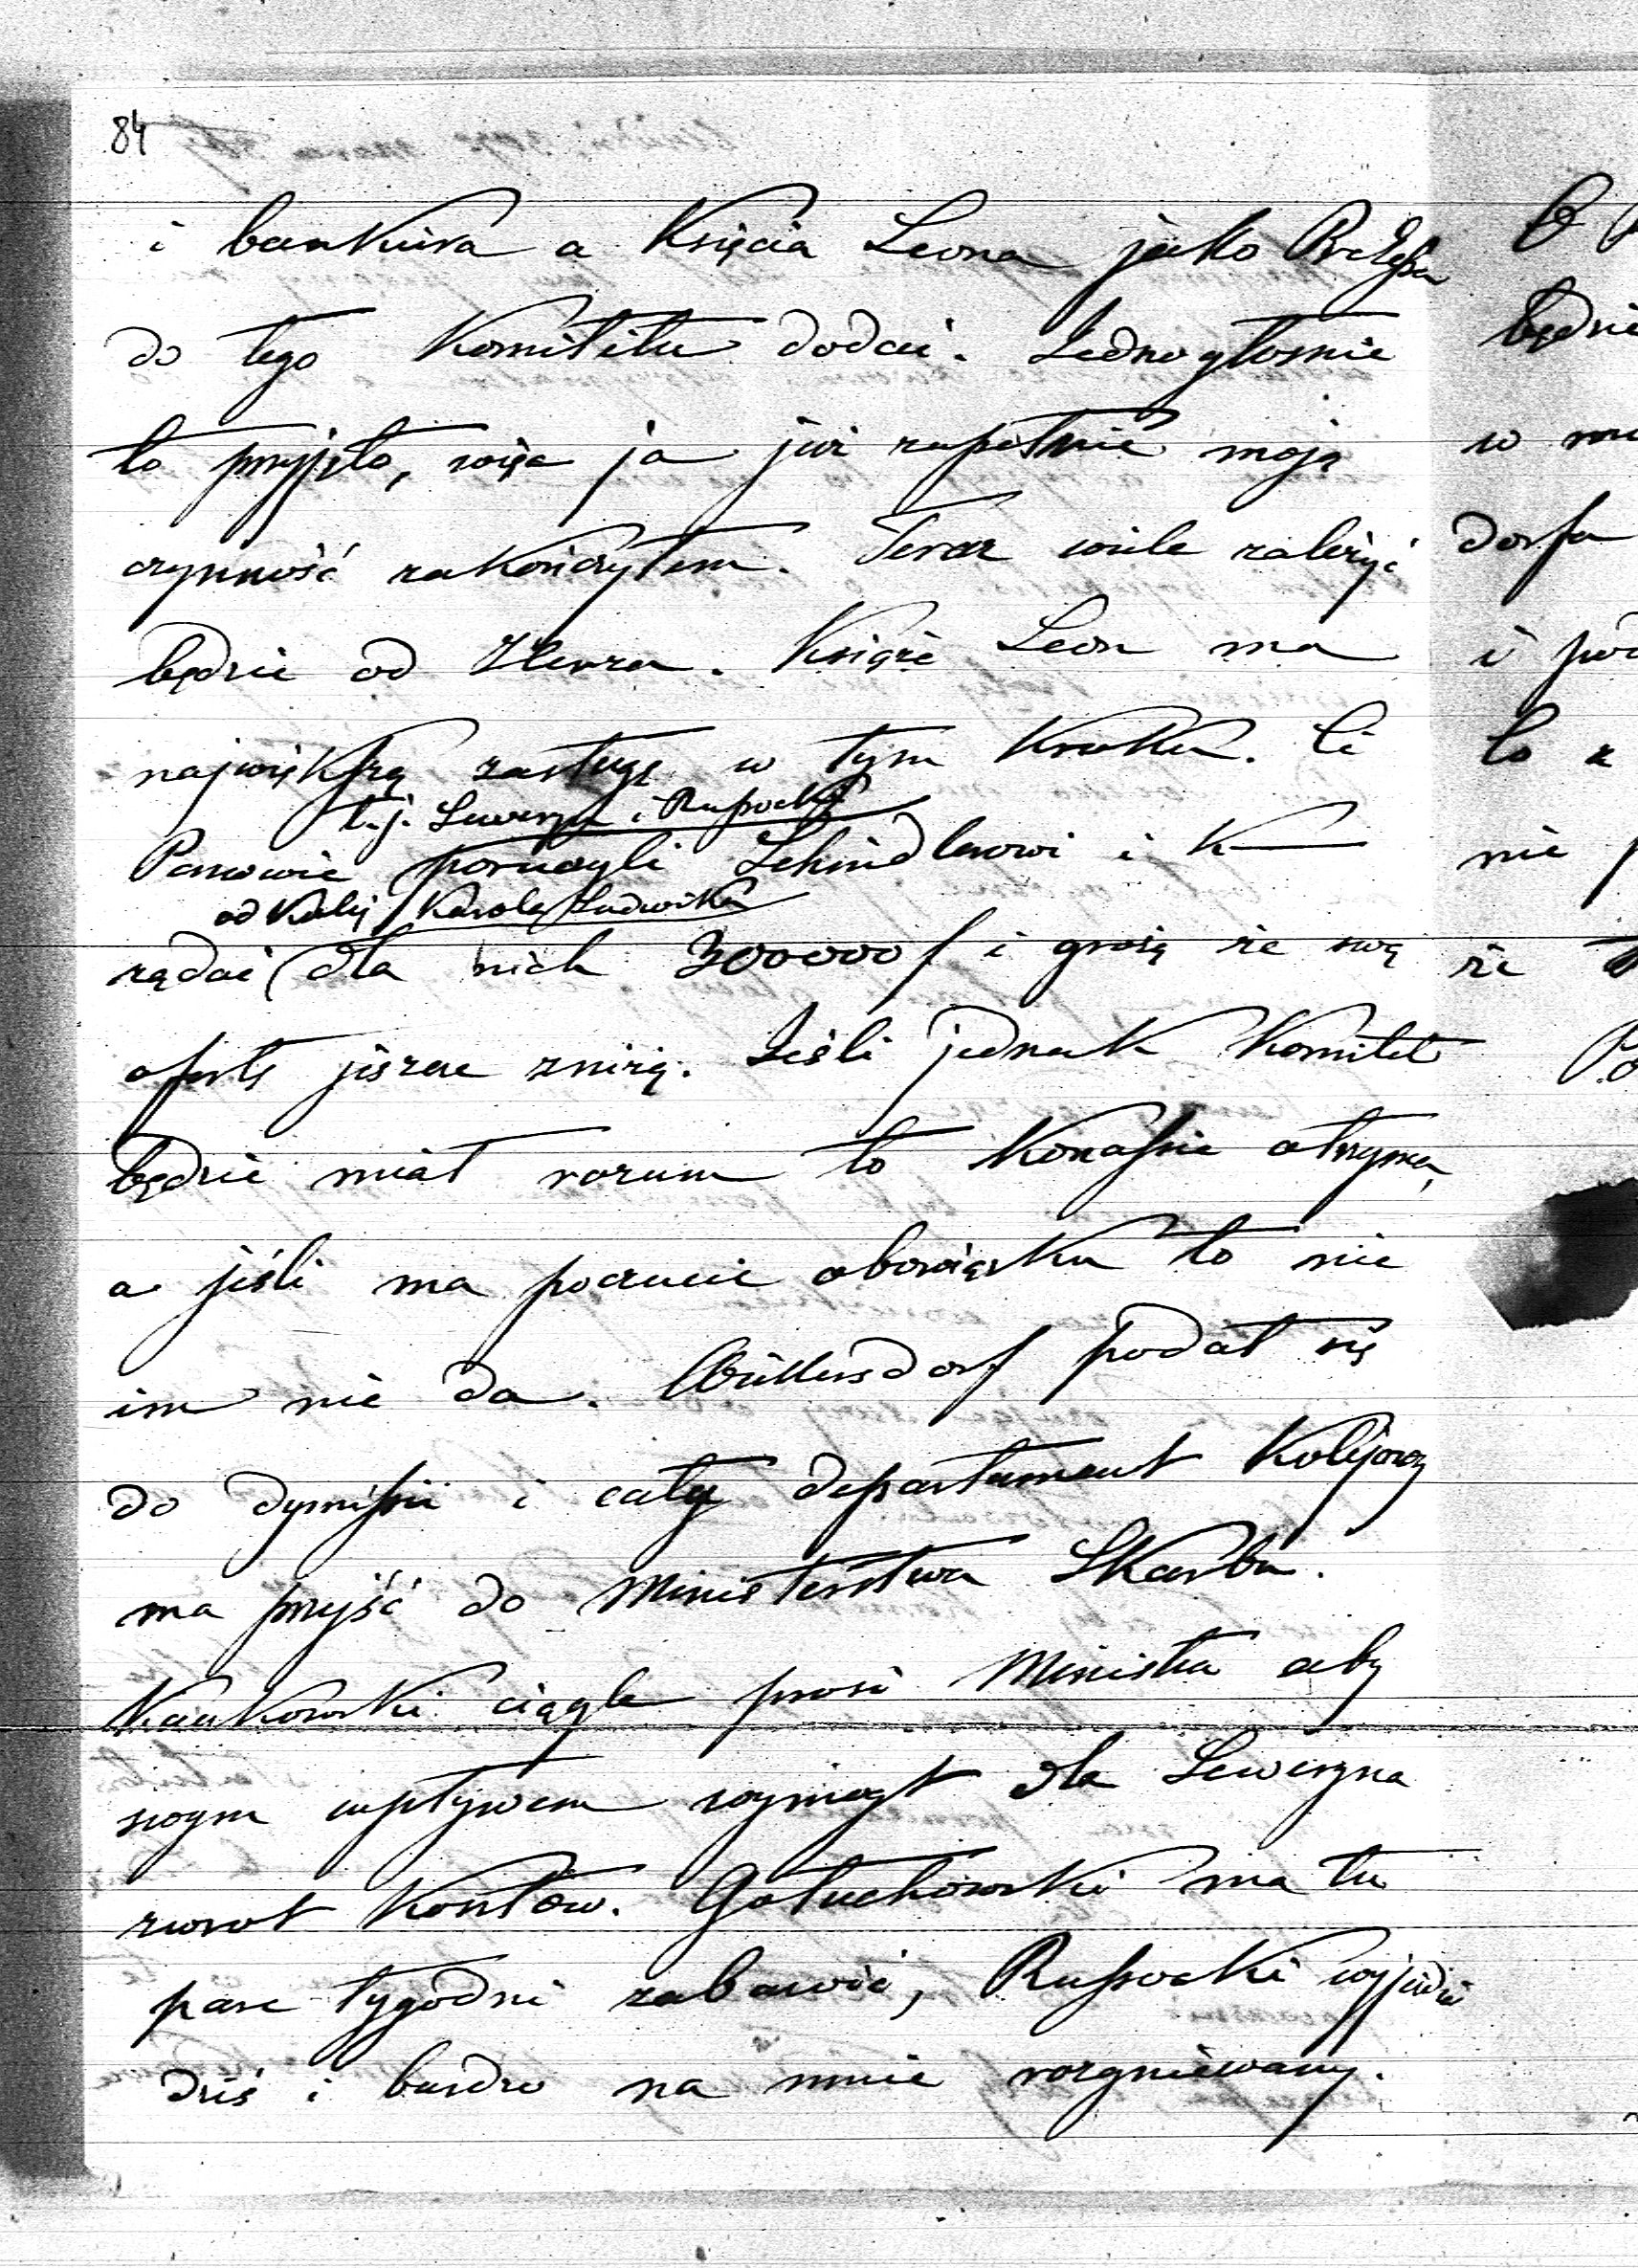 84
i bankiera a Księcia Leona jako Prezesa
do tego Komitetu dodać. Jednogłośnie
to przyjęto, więc ja już zupełnie moją
czynność zakończyłem. Teraz wiele zależyć
będzie od Herza. Książe Leon ma
największą zasługę w tym kroku. Ci
t.j. Seweryn i Russocki
Panowie poruczyli Schindlerowi i K
od Kolej Karola Ludwika
żądać dla nich 300000 f i grożą że swą
ofertę jeszcze zniżą. Jeśli jednak Komitet
będzie miał rozum to Konassie otrzyma,
a jeśli ma poczucie obowiązku to nie
im nie da. Wüllersdorf podał się
do dymissii i cały departament Kolejowy
ma przyjść do Ministerstwa Skarbu.
ciągle prosi Ministra aby
swym wpływem wymógł dla Seweryna
zwrot Kosztów. Gołuchowski ma tu
parę tygodni zabawić, Russocki wyjeżdża
dziś i bardzo na mnie rozgniewany.
będzie
w
dorfa
i
to z
nie
że